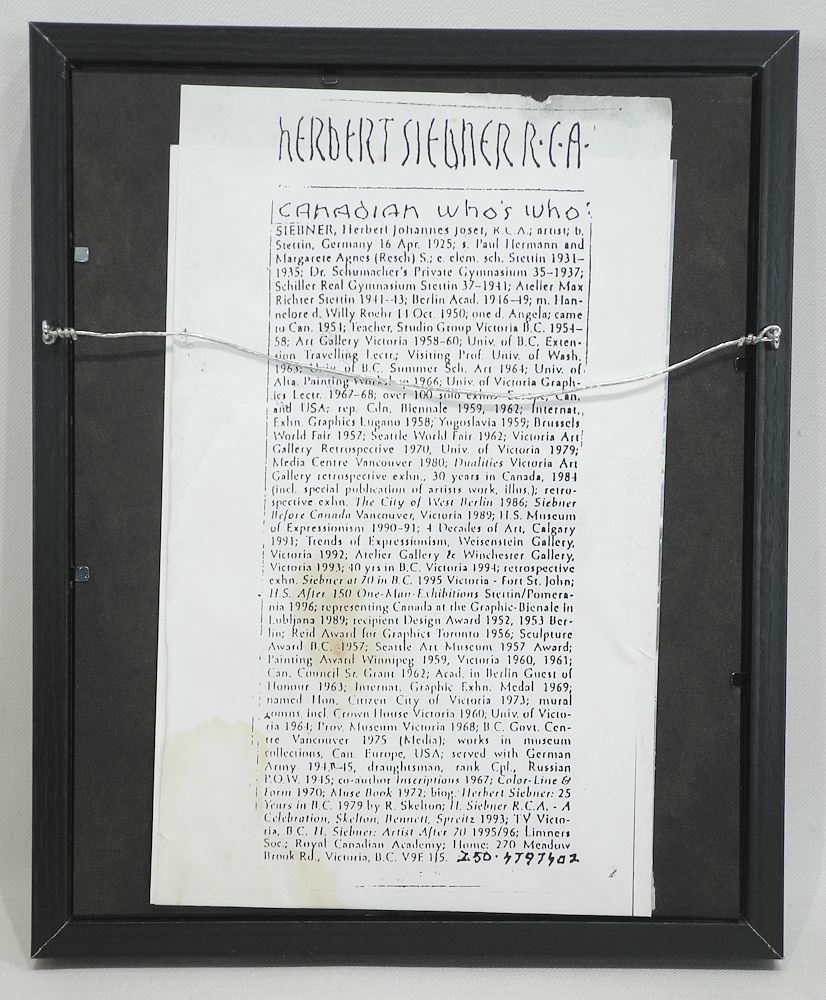 HERBERT SIEBNER R.C.A.
CANADIAN Who's Who:
SIEBNER, Herbert Johannes Josef, R.C.A.; artist; b.
Stettin, Germany 16 Apr. 1925; s. Paul Hermann and
Margarete Agnes (Resch) S.; e. elem. sch. Stettin 1931-
1935; Dr. Schumacher's Private Gymnasium 35-1937;
Schiller Real Gymnasium Stettin 37-1941; Atelier Max
Richter Stettin 1941-43; Berlin Acad. 1946-49; m. Han-
nelore d. Willy Roehr 14 Oct. 1950; one d. Angela; came
to Can. 1954; Teacher, Studio Group Victoria B.C. 1954-
58; Art Gallery Victoria 1958-60; Univ. of B.C. Exten-
tion Travelling Lectr.; Visiting Prof. Univ. of Wash.
1963; Univ. of B.C. Summer Sch. Art 1964; Univ. of
Alta. Painting Workshop 1966; Univ. of Victoria Graph-
ics Lectr. 1967-68; over 100 solo exhns. Europe, Can.
and USA; rep. Cdn. Biennale 1959, 1962; Internat.
Exhn. Graphics Lugano 1958; Yugoslavia 1959; Brussels
World Fair 1957; Seattle World Fair 1962; Victoria Art
Gallery Retrospective 1970, Univ. of Victoria 1979;
Media Centre Vancouver 1980; Dualities Victoria Art
Gallery retrospective exhn., 30 years in Canada, 1984
(incl. special publication of artists work, illus.); retro-
spective exhn. The City of West Berlin 1986; Siebner
Before Canada Vancouver, Victoria 1989; H.S. Museum
of Expressionism 1990-91; 4 Decades of Art, Calgary
1991; Trends of Expressionism, Weisenstein Gallery,
Victoria 1992; Atelier Gallery & Winchester Gallery,
Victoria 1993; 40 yrs in B.C. Victoria 1994; retrospective
exhn. Siebner at 70 in B.C. 1995 Victoria - Fort St. John;
H.S. After 150 One-Man-Exhibitions Stettin/Pomera-
nia 1996; representing Canada at the Graphic-Bienale in
Lubljana 1989; recipient Design Award 1952, 1953 Ber-
lin; Reid Award for Graphics Toronto 1956; Sculpture
Award B.C. 1957; Seattle Art Museum 1957 Award;
Painting Award Winnipeg 1959, Victoria 1960, 1961;
Can. Council Sr. Grant 1962; Acad. in Berlin Guest of
Honour 1963; Internat. Graphic Exhn. Medal 1969;
named Hon. Citizen City of Victoria 1973; mural
comns. incl. Crown House Victoria 1960; Univ. of Victo-
ria 1964; Prov. Museum Victoria 1968; B.C. Govt. Cen-
tre Vancouver 1975 (Media); works in museum
collections, Can. Europe, USA; served with German
Army 45, draughtsman, rank Cpl., Russian
P.O.W. 1945; co-author Inscriptions 1967; Color-Line &
Form 1970; Muse Book 1972; biog. Herbert Siebner: 25
Years in B.C. 1979 by R. Skelton; H. Siebner R.C.A. - A
Celebration, Skelton, Bennett, Spreitz 1993; TV Victo-
ria, B.C. H. Siebner: Artist After 70 1995/96; Limners
Soc.; Royal Canadian Academy; Home: 270 Meadow
Brook Rd., Victoria, B.C. V9E 1J5. 250·4797402